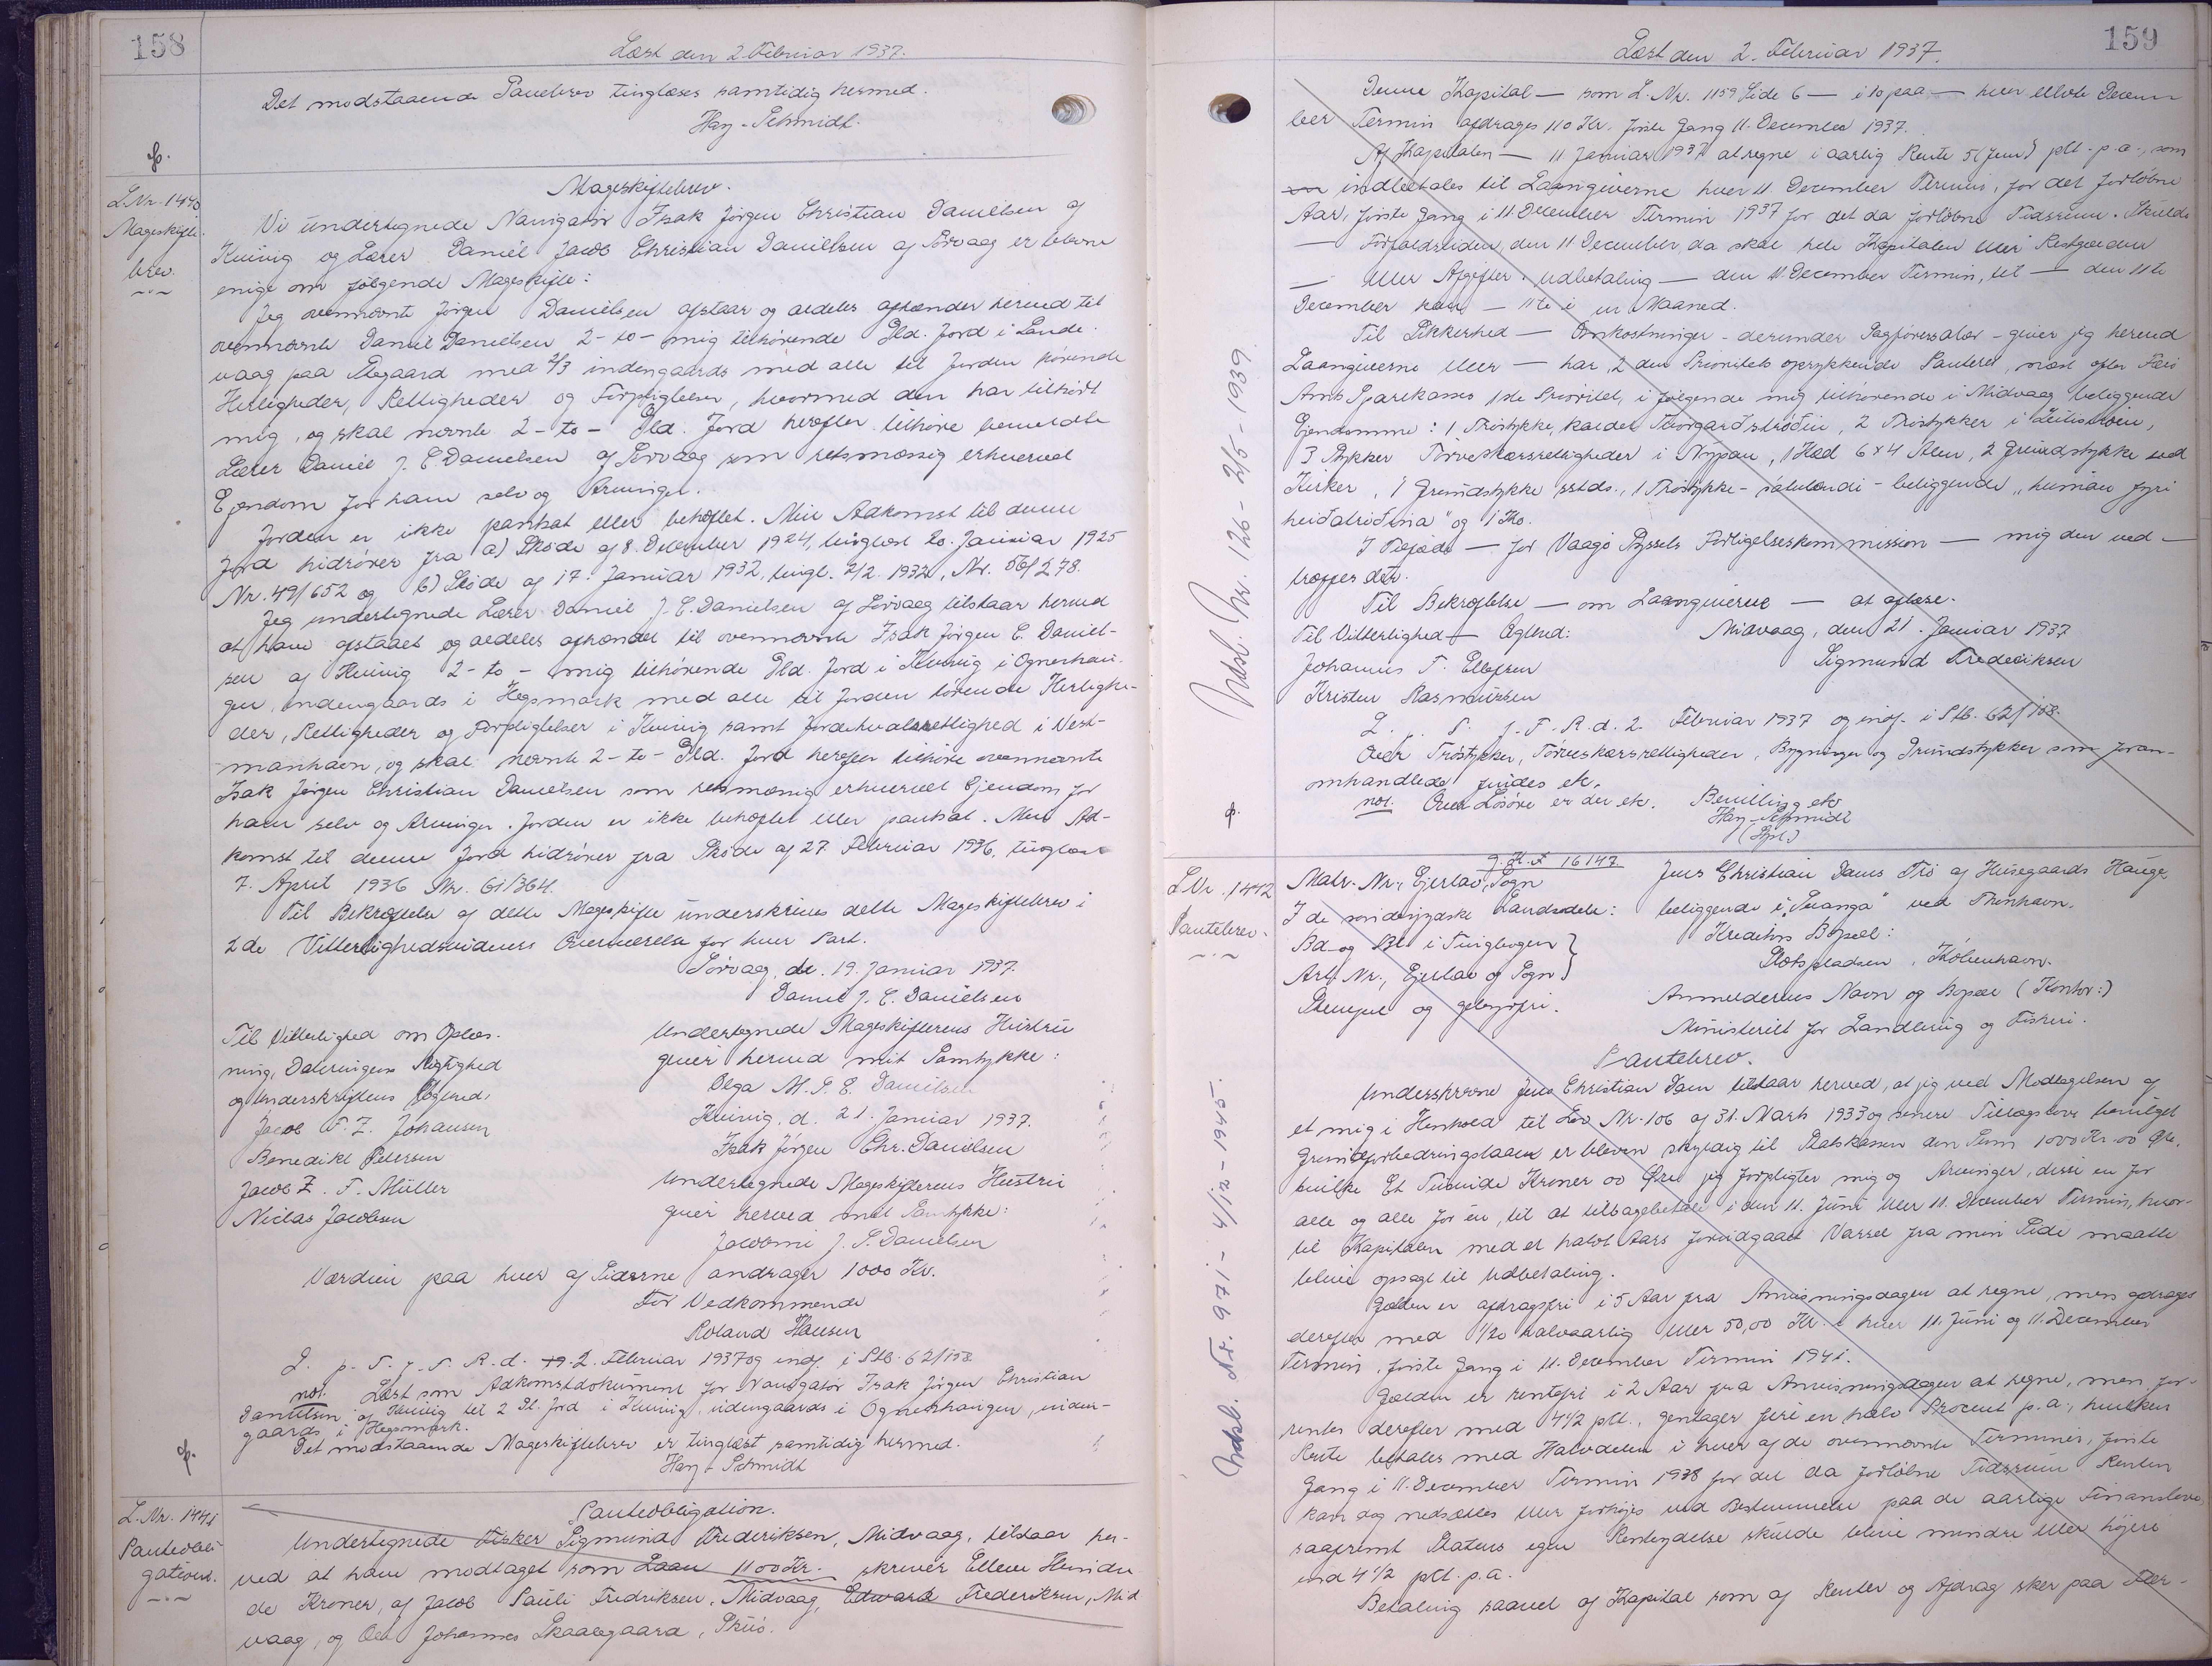 158
Læst den 2. Februar 1937.
Det modstaaende Pantebrev tinglæses samtidig hermed.
Hay-Schmidt.
L.Nr. 1440
Mageskifte-
brev.
Mageskiftebrev.
Vi undertegnede Navigatør Isak Jørgen Christian Danielsen af
Kvivig og Lærer Daniel Jacob Christian Danielsen af Sørvaag er blevne
enige om følgende Mageskifte:
Jeg ovennævnte Jørgen Danielsen afstaar og aldeles afhænder herved til
ovennævnte Daniel Danielsen 2-to- mig tilhørende Gld. Jord i Sande-
vaag paa med 2/3 indengaards med alle til Jorden hørende
Herligheder, Rettigheder og Forpligtelser, hvormed den har tilhørt
mig, og skal nævnte 2-to- Gld. Jord herefter tilhøre bemeldte
Lærer Daniel J. C. Danielsen af Sørvaag som retsmæssig erhvervet
Ejendom for ham selv og Arvinger.
Jorden er ikke pantsat eller behæftet. Min Adkomst til denne
Jord hidrører fra a) Skøde af 8. December 1924, tinglæst 20. Januar 1925
Nr. 49/652 og b) Skøde af 17. Januar 1932, tingl. 2/2 1932, Nr. 56/278.
Jeg undertegnede Lærer Daniel J. C. Danielsen af Sørvaag tilstaar herved
at have afstaaet og aldeles afhændet til ovennævnte Isak Jørgen C. Daniel-
sen af Kvivig 2-to- mig tilhørende Gld. Jord i Kvivig i Ognerhau-
gen, indengaards i Hegsmark med alle til Jorden hørende Herlighe-
der, Rettigheder og Forpligtelser i Kvivig samt Jordehvalsrettighed i Vest-
manhavn, og skal nævnte 2-to- Gld. Jord herefter tilhøre ovennævnte
Isak Jørgen Christian Danielsen som retsmæssig erhvervet Ejendom for
ham selv og Arvinger. Jorden er ikke behæftet eller pantsat. Min Ad-
komst til denne Jord hidrører fra Skøde af 27. Februar 1936, tinglæst
7. April 1936 Nr. 61/364.
Til Bekræftelse af dette Mageskifte underskrives dette Mageskiftebrev i
2de Vitterlighedsvidners Overværelse for hver Part.
Sørvaag, de. 19. Januar 1937.
Daniel J. C. Danielsen
Til Vitterlighed om Oplæs-
ning, Dateringens Rigtighed
og Underskriftens Ægthed:
Jacob F. Z. Johansen
Benedikt Petersen
Jacob Z. F. Müller
Niclas Jacobsen
Undertegnede Mageskifterens Hustru
giver herved mit Samtykke:
Olga M. S. E. Danielsen
Kvivig, d. 21. Januar 1937.
Isak Jørgen Chr. Danielsen
Undertegnede Mageskifterens Hustru
giver herved mit Samtykke:
Jacobine J. S. Danielsen
Værdien paa hver af Siderne andrager 1000 Kr.
For Vedkommende
Roland Hansen
L. p. T. f. F. R. d. 2. Februar 1937 og indf. i Ptb. 62/158.
not. Læst som Adkomstdokument for Navigatør Isak Jørgen Christian
Danielsen af Kvivig til 2 Gl. Jord i Kvivig, indengaards i Ognerhaugen, inden-
gaards i Hegsmark.
Det modstaaende Mageskiftebrev er tinglæst samtidig hermed.
Hay-Schmidt
L.Nr. 1441
Panteobli-
gation.
Panteobligation.
Undertegnede Fisker Sigmund Frederiksen, Midvaag, tilstaar her-
ved at have modtaget som Laan 1100 Kr. skriver Elleve Hundre-
de Kroner, af Jacob Pauli Fredriksen, Midvaag, Edward Frederiksen, Mid
vaag, og Johannes Skaalegaard,
159
Læst den 2. Februar 1937.
Denne Kapital — som L.Nr. 1159 Side 6 — i to paa — hver ellevte Decem
ber Termin afdrages 110 Kr. første Gang 11. December 1937.
Af Kapitalen — 11 Januar 1937 at regne i aarlig Rente 5 (fem) pCt. p.a., som
indbetales til Laangiverne hver 11. December Termin, for det forløbne
Aar, første Gang i 11 December Termin 1937 for det da forløbne Tidsrum. Skulde
— Forfaldstiden, den 11 December, da skal hele Kapitalen eller Restgælden
— Eller Afgifter. Udbetaling — den 11. December Termin, til — den 11te
December kan — 11te i en Maaned.
Til Sikkerhed — Omkostninger - derunder Sagførersalær - giver jeg herved
Laangiverne eller — har, 2 den Prioritets oprykkende Panteret, næst efter Færø
Amts Sparekasses 1ste Prioritet, i følgende mig tilhørende i Midvaag beliggende
Ejendomme: 1 Trøstykke, kaldet 2 Trøstykker i
3 Stykker Tørveskærsrettigheder i Nýpan, 1 Hæd 6x4 Alen, 2 Grundstykke ved
Kirken, 1 Grundstykke sstds., 1 Trøstykke - beliggende
og 1 Ko.
I Tilfælde — for Vaagø Syssels Forligelseskommission — mig den ved —
træffer det.
Til Bekræftelse — om Laangiverne — at oplæse.
Til Vitterlighed — Ægthed:
Johannes T. Ellefsen
Kristen Rasmussen
Midvaag, den 21. Januar 1937
Sigmund Frederiksen
L. p. T. f. F. R. d. 2. Februar 1937 og indf. i Ptb. 62/158.
Over Trøstykker, Tørveskærsrettigheder, Bygninger og Grundstykker som foran-
omhandlede findes ek.
not. Over Løsøre er der ek. Bevilling ek
Hay-Schmidt
Indsl. Nr. 126 - 2/5 - 1939.
L.Nr. 1442
Pantebrev.
g. K. F 16147
Matr. Nr., Ejerlav, Sogn
I de sønderjydske Landsdele:
Bd-og Bl i Tingbogen
Art. Nr., Ejerlav og Sogn
Stempel og gebyrfri.
Jens Christian Dams Trø af Husegaards Hauge
beliggende i ved Thorshavn.
Kreditors Bopæl:
Slotspladsen, København.
Anmelderens Navn og Bopæl (Kontor:)
Ministeriet for Landbrug og Fiskeri.
Pantebrev.
Underskrevne Jens Christian Dam tilstaar herved, at jeg ved Modtagelsen af
et mig i Henhold til Lov Nr. 106 af 31. Marts 1933 og senere Tillægslove bevilget
Grundforbedringslaan er bleven skyldig til Statskassen den Sum 1000 Kr. 00 Øre,
hvilke Et Tusinde Kroner 00 Øre jeg forpligter mig og Arvinger, disse en for
alle og alle for en, til at tilbagebetale i den 11. Juni eller 11. December Termin, hvor-
til Kapitalen med et halvt Aars forudgaaet Varsel fra min Side maatte
blive opsagt til Udbetaling.
Gælden er afdragsfri i 5 Aar fra Anvisningsdagen at regne, men afdrages
derefter med 1/20 halvaarlig eller 50,00 Kr. i hver 11. Juni og 11. December
Termin, første Gang i 11. December Termin 1941.
Gælden er rentefri i 2 Aar fra Anvisningsdagen at regne, men for-
rentes derefter med 4 1/2 pCt., gentager fire en halv Procent p.a., hvilken
Rente betales med Halvdelen i hver af de ovennævnte Terminer, første
Gang i 11. December Termin 1938 for det da forløbne Tidsrum. Renten
kan dog nedsættes eller forhøjes ved Bestemmelse paa de aarlige Finanslove,
saafremt Statens egen Renteydelse skulde blive mindre eller højere
end 4 1/2 pCt. p.a.
Betaling saavel af Kapital som af Renter og Afdrag sker paa
Indsl. Nr. 971 - 4/12 - 1945.